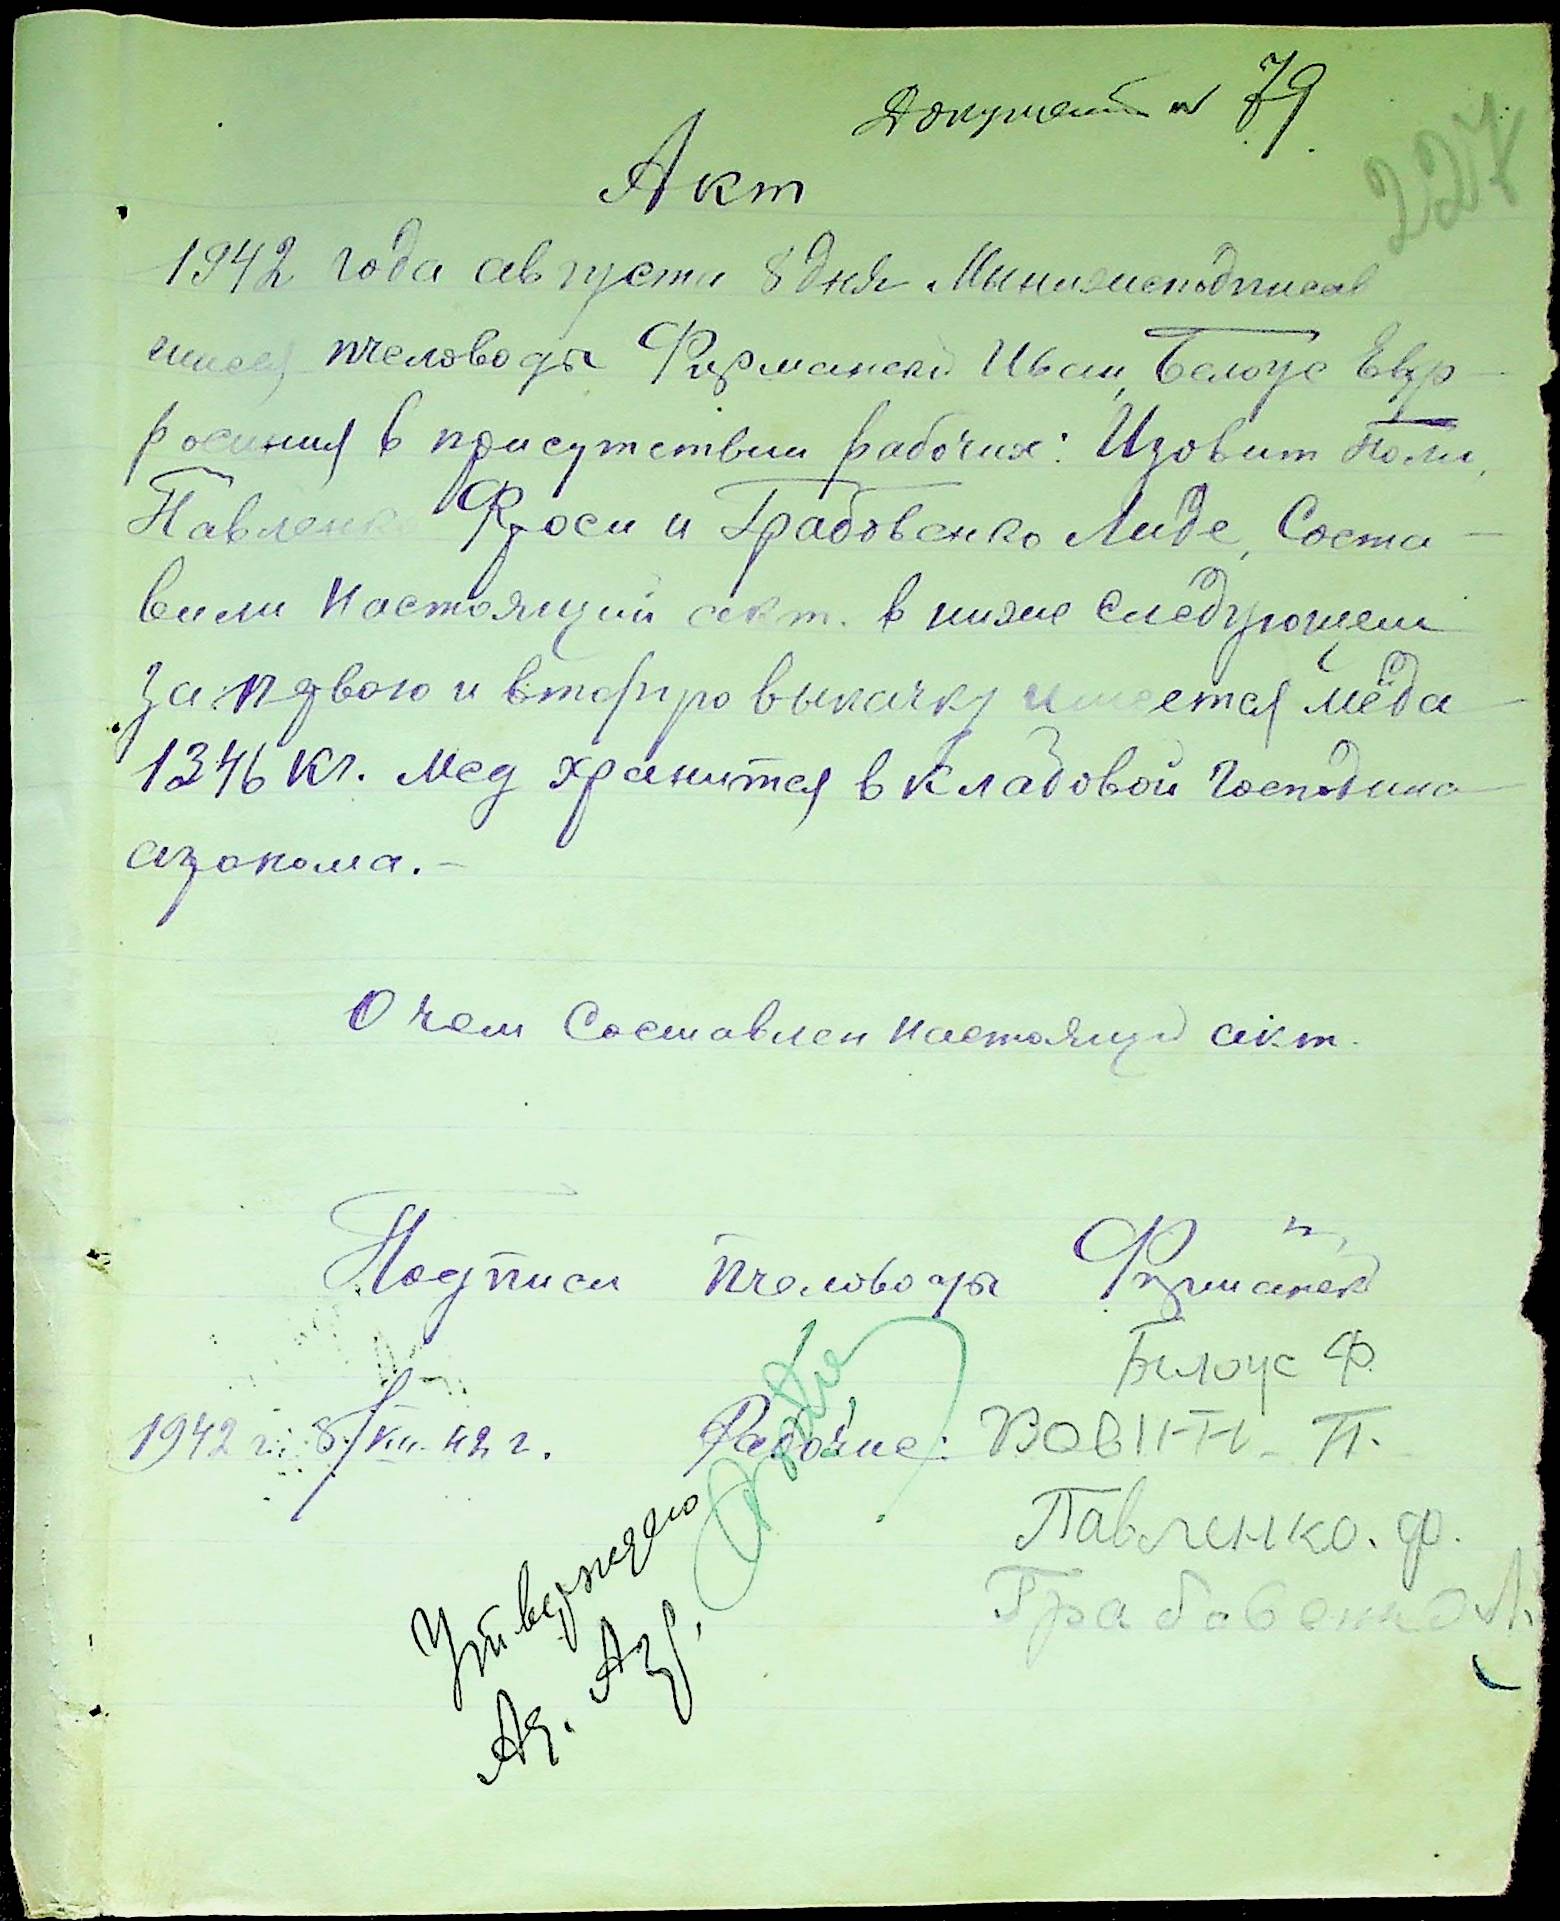 Документ № 79
227
Акт
1942 года августа 8 дня Мынижеподписав
шиеся пчеловоды Фурманский Иван, Белоус Евф-
росиния в присутствии рабочих: Изовит Поли,
Павленко Фроси и Грабовенко Лиде, Соста-
вили Настоящий акт. в ниже следующем
За первою и вторую выкачку имеется мёда
1346 кг. Мед хранится в кладовой Господина
агронома.-
О чем Составлен Настоящий акт.
Подписи Пчеловоды Фурманск
Билоус Ф.
1942 г. 8/VIII 42 г. Рабочие: Зовит П.
Павленко. Ф.
Грабовенко Л.
Утверждаю
Аг.